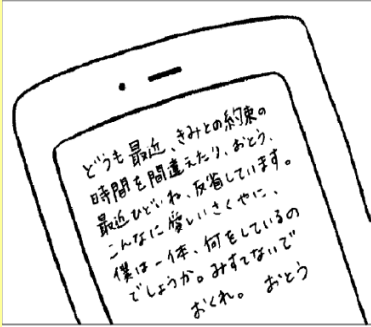 どうも最近、きみとの約束の
時間を間違えたり、おとう、
最近ひどいね、反省しています。
こんなに愛しいさくやに、
僕は一体、何をしているの
でしょうか。みすてないで
おくれ。 おとう